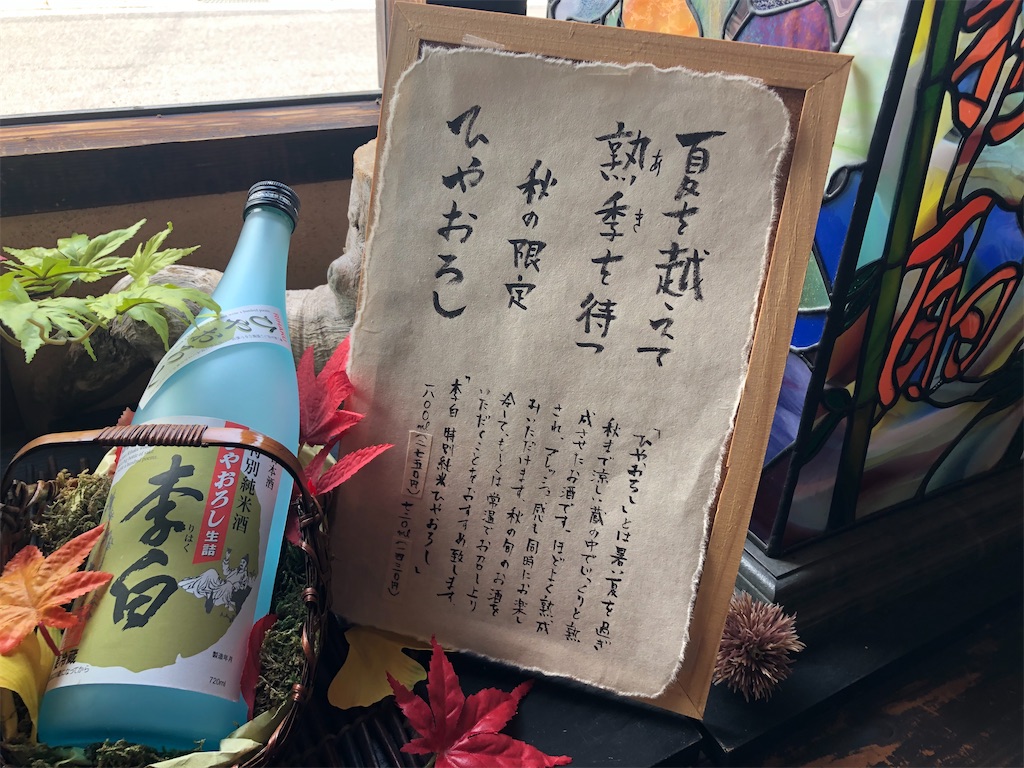 夏を越えて
熟季を待つ
あき
秋の限定
ひやおろし
「ひやおろし」とは暑い夏を過ぎ
秋まで涼しい蔵の中でじっくりと熟
成させたお酒です。ほどよく熟成
され、フレッシュ感も同時にお楽し
みいただけます。秋の旬のお酒を
冷して、もしくは常温でお召し上り
いただくことをおすすめ致します。
「李白 特別純米ひやおろし」
一八〇〇ml(二七五〇円)七二〇ml(一四二〇円)
ひやおろし
特別純米酒
ひやおろし生詰
李白
りはく
製造年月
720ml
になってから